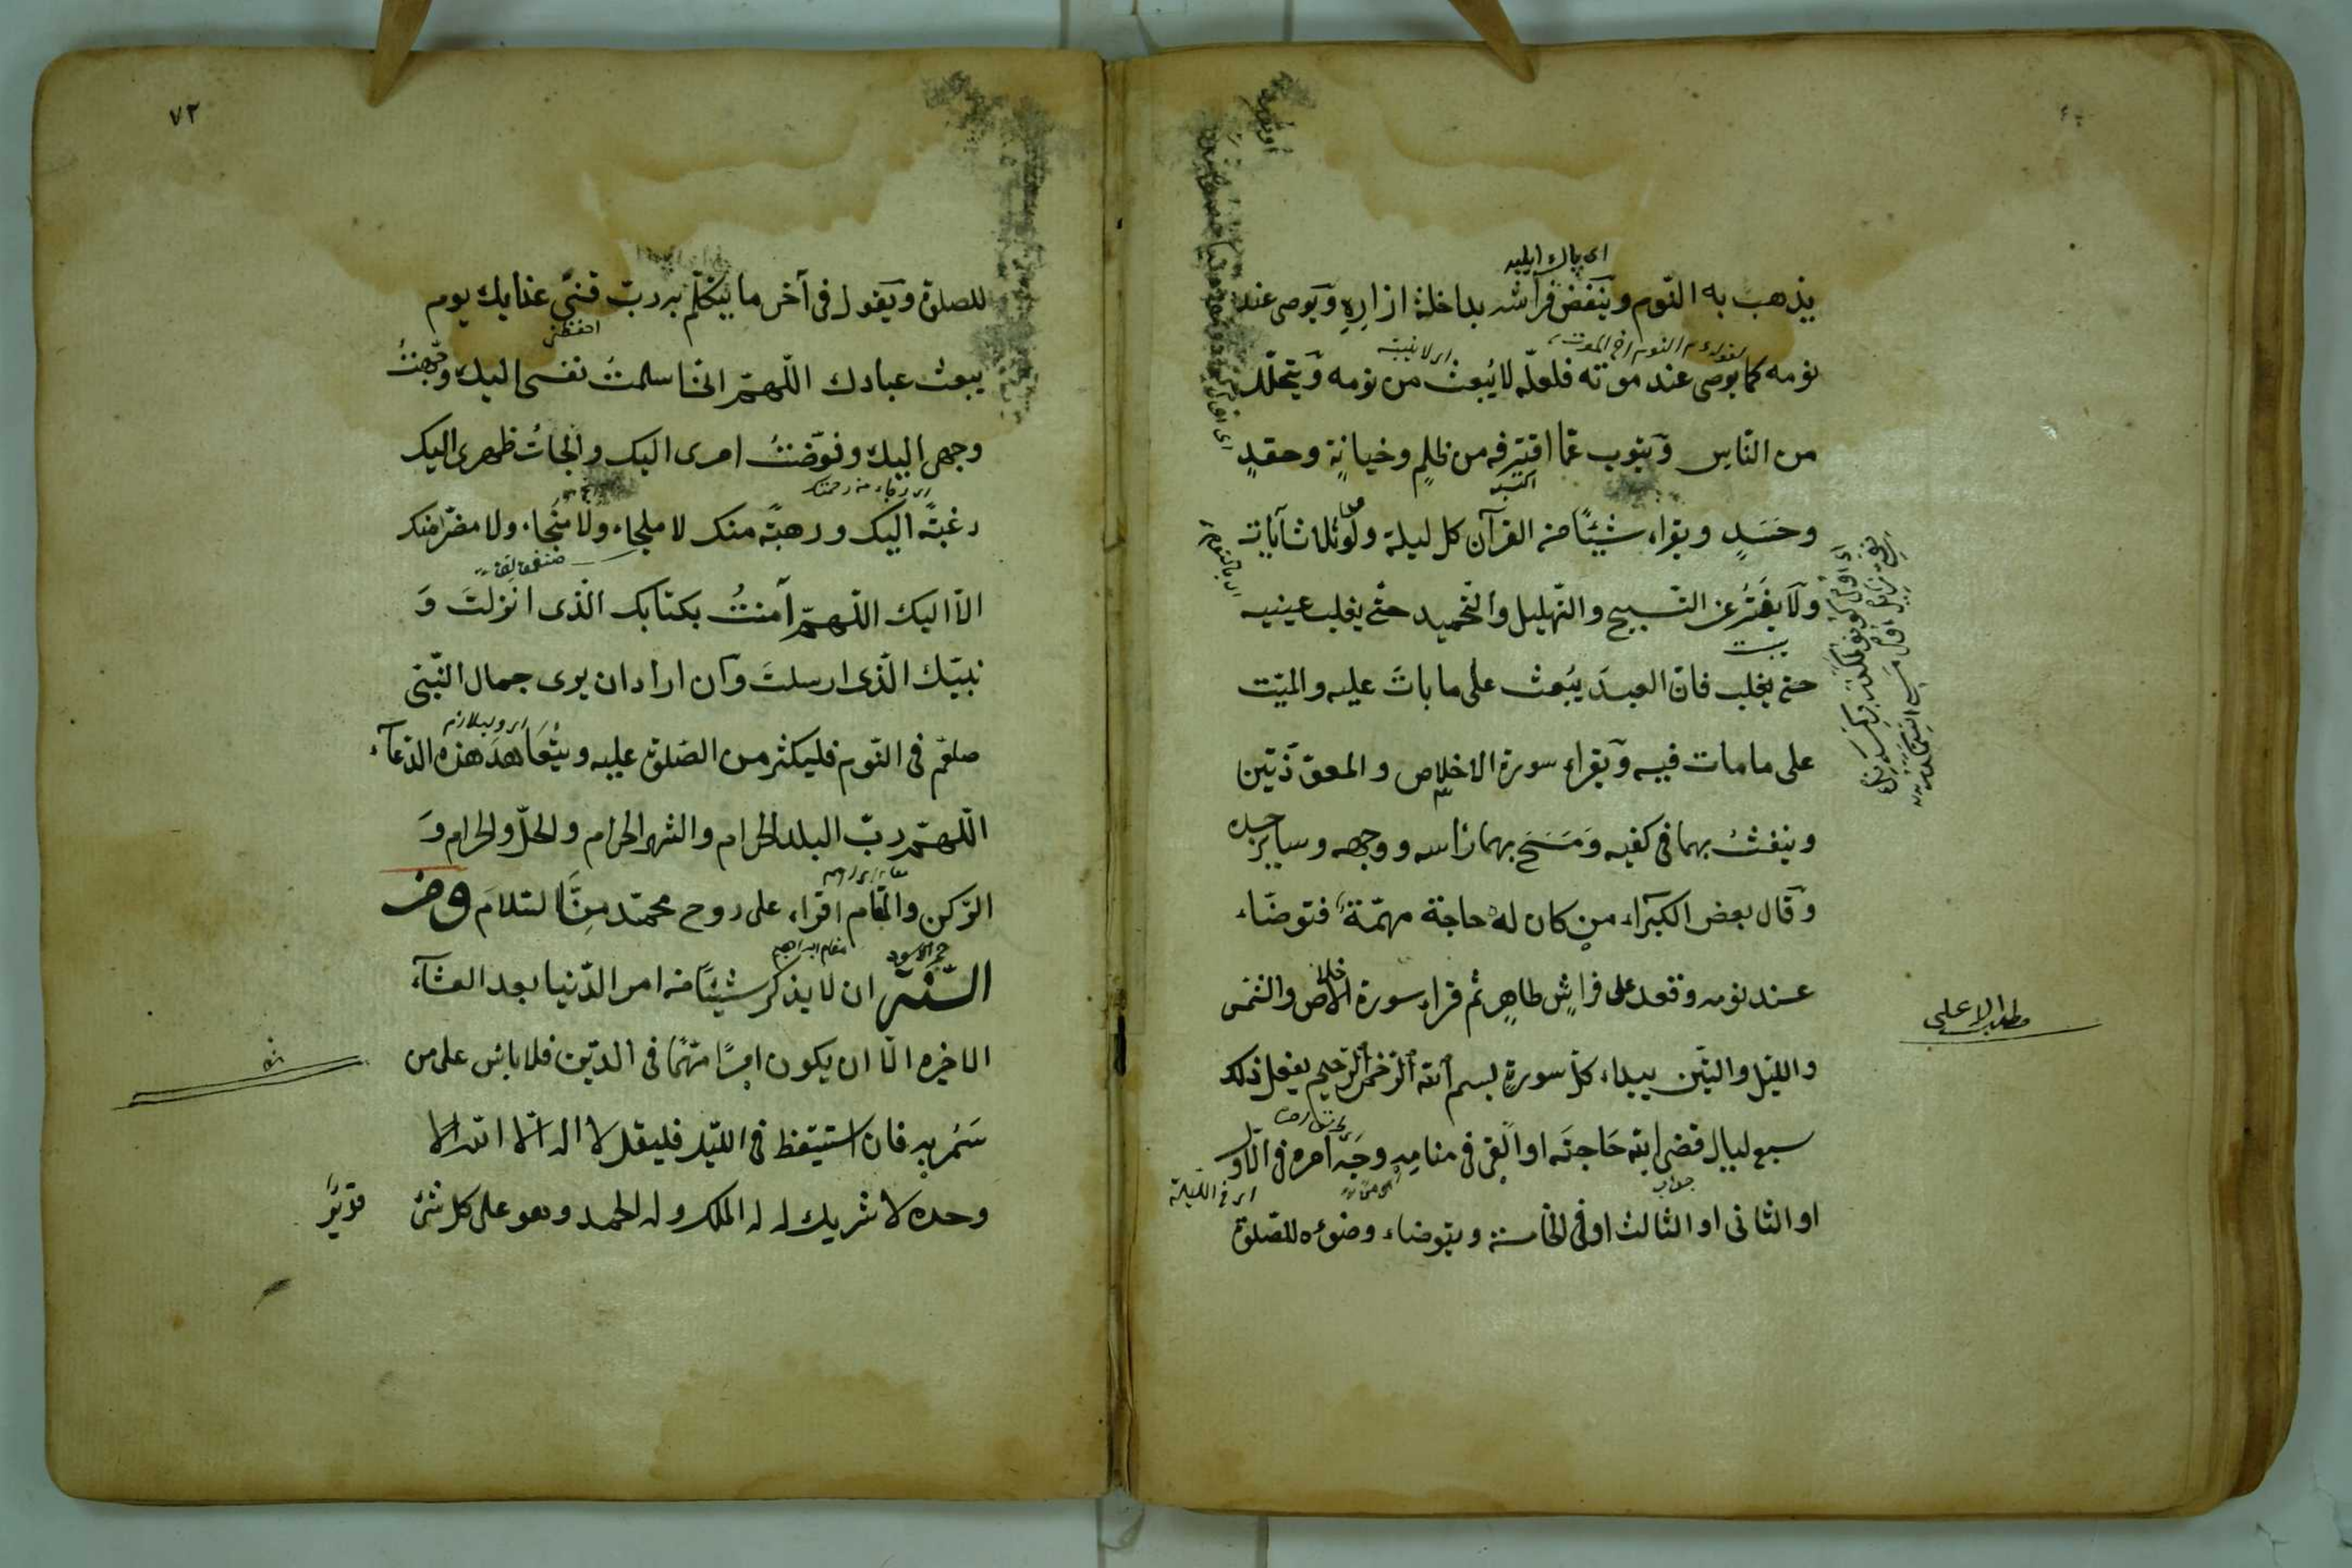 اى پاك ايليه
يذهب به النّوم وينفض فراشه بداخلة ازاره ويوصى عند
لقوله عم النوم اخ الموت
نومه كما يوصى عند موته فلعلّه لا يُبعث من نومه ويتحلّل
من النّاس ويتوب عمّا اقترفه من ظلمٍ وخيانةٍ وحقدٍ
اكتسبه
وحَسَدٍ ويقراء شيئًا من القرآن كل ليلة ولو ثلاث آيات
ولا يفتُر عن التّسبيح والتّهليل والتحميد حتّى يغلب عينيه
حتى يغلب فانّ العبدَ يُبعث على ما بات عليه والميّت
على ما مات فيه ويقراء سورة الاخلاص والمعوّذتين
وينفثُ بهما فى كفيه ومَسَحَ بهما رأسه ووجهه وساير جسده
وقال بعض الكبراء من كان له حاجة مهمّة فتوضّاء
عند نومه وقعد على فراشٍ طاهرٍ ثم قراء سورة الاخلاص والشمس
مطلب الاعلى
والليل والتين يبداء كلّ سورةٍ بسم الله الرّحمن الرّحيم يفعل ذلك
سبع ليال قضى الله حَاجتَه او اُلقى فى منامه وجَه امره فى الاول
جواب
اى فى الليلة
او الثانى او الثالث او فى الخامسة ويتوضاء وضوءه للصّلوة
٧٢
للصلوة ويقول فى آخر ما يتكلّم به ربّ قنى عذابك يوم
احفظنى
يبعث عبادك اللّهمّ انّى اسلمتُ نفسى اليك ووجّهتُ
وجهى اليك وفوّضتُ امرى اليك والجأتُ ظهرى اليك
اى رجاء من رحمتك
رغبتًه اليك ورهبتًه منك لا ملجاء ولا منجاء ولا مفرّ منك
الّا اليك اللّهمّ آمنتُ بكتابك الّذى انزلتَ و
نبيّك الّذى ارسلتَ وان اراد ان يرى جمال النّبى
اى ويلازم
صلعم فى النّوم فليكثر من الصّلوة عليه ويتعاهدَ هذه الدّعاء
اللّهمّ ربّ البلد الحرام والشهر الحرام والحلّ والحرام و
الرّكن والمقام اقراء على روح محمّد منّا السّلام ومن
حجر الاسود
مقام ابراهيم
السّنّة ان لا يذكر شيئًا من امر الدّنيا بعد العشاء
الاخيره الّا ان يكون امرًا مهمًّا فى الدّين فلا باس على من
سَمُر به فان استيقظ فى الليل فليقل لا اله الّا الله
وحده لا شريك له له الملك وله الحمد وهو على كل شئ قدير